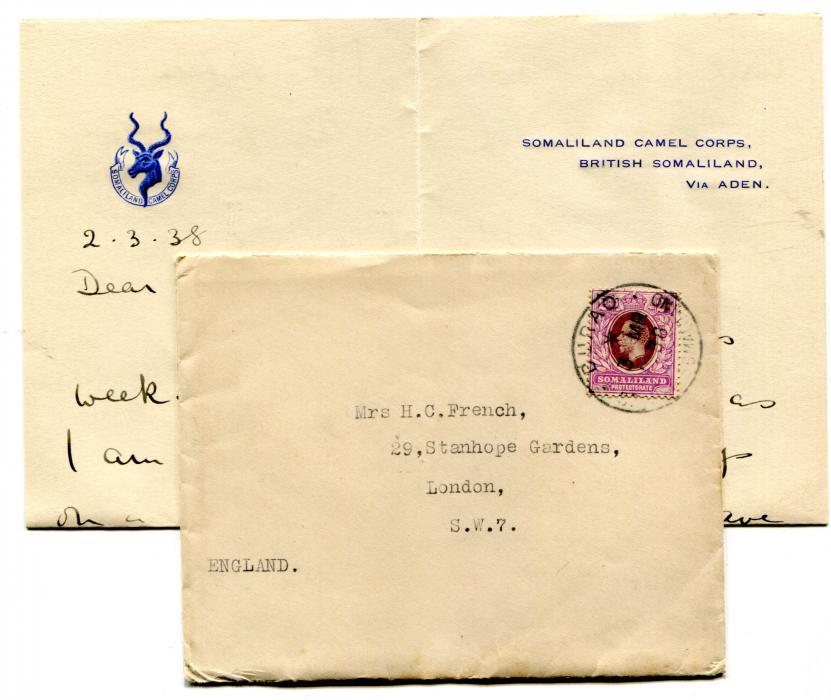 SOMALILAND CAMEL CORPS
SOMALILAND CAMEL CORPS,
BRITISH SOMALILAND,
VIA ADEN.
2.3.38
Dear
week.
as
I am
on a
ave
BURAO
MR
SOMALILAND
PROTECTORATE
Mrs H.C.French,
29,Stanhope Gardens,
London,
S.W.7.
ENGLAND.